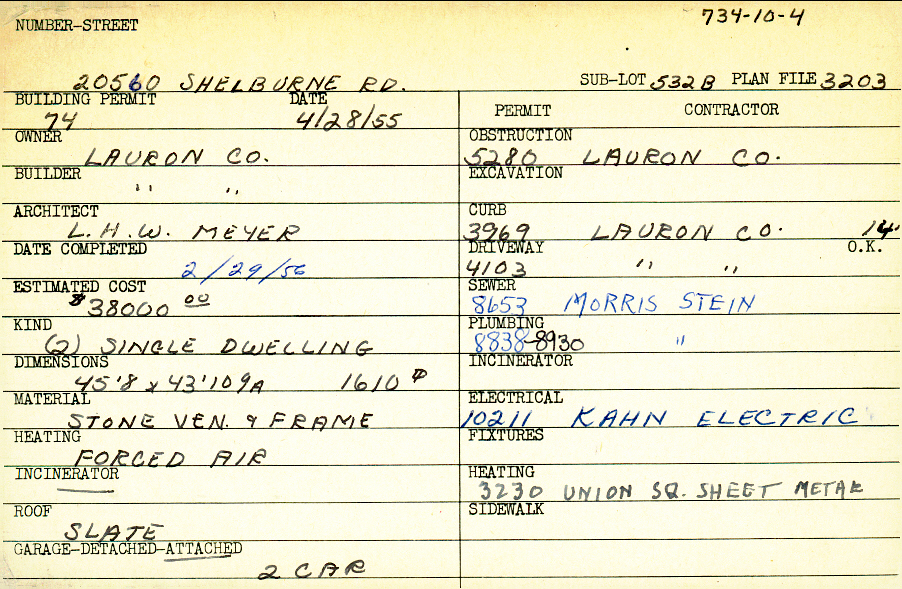 734-10-4
NUMBER-STREET
20560 SHELBURNE RD. SUB-LOT 532B PLAN FILE 3203
BUILDING PERMIT DATE
74 4/28/55
OWNER
LAURON CO.
BUILDER
" "
ARCHITECT
L.H.W. MEYER
DATE COMPLETED
2/29/56
ESTIMATED COST
$38000 00
KIND
(2) SINGLE DWELLING
DIMENSIONS
45'8 x 43'10 9A 1610
MATERIAL
STONE VEN. & FRAME
HEATING
FORCED AIR
INCINERATOR
ROOF
SLATE
GARAGE-DETACHED-ATTACHED
2 CAR
PERMIT CONTRACTOR
OBSTRUCTION
5280 LAURON CO.
EXCAVATION
CURB
3969 LAURON CO. 14'
DRIVEWAY O.K.
4103 " "
SEWER
8653 MORRIS STEIN
PLUMBING
8838-8930 "
INCINERATOR
ELECTRICAL
10211 KAHN ELECTRIC
FIXTURES
HEATING
3230 UNION SQ. SHEET METAL
SIDEWALK